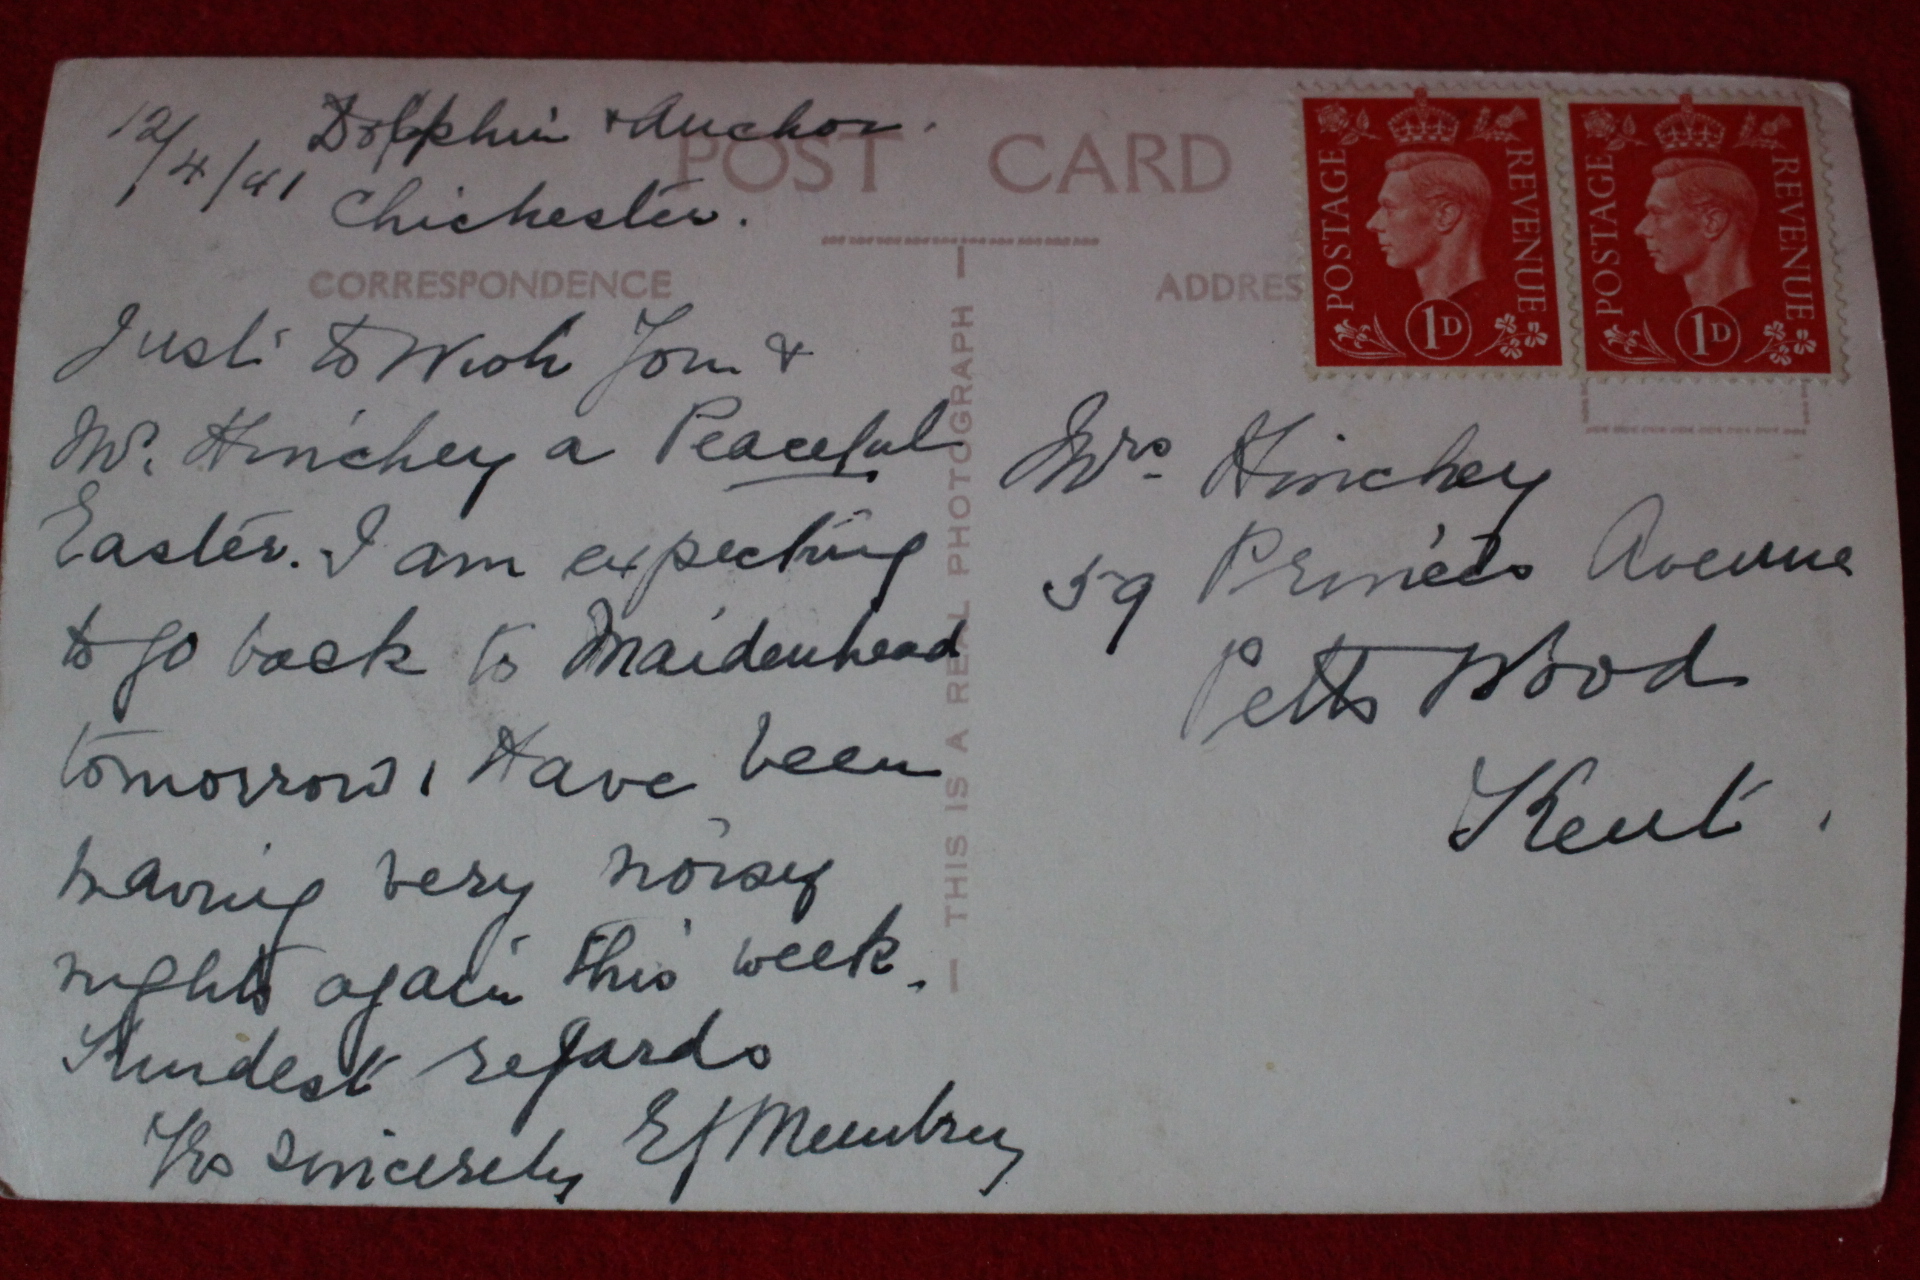 12/4/41 Dolphin & Anchor.
Chichester.
POST CARD
CORRESPONDENCE
ADDRES
Just to Wish You &
Mr. Hinchey a Peaceful
Easter. I am expecting
to go back to Maidenhead
tomorrow, Have been
having very noisy
nights again this week.
Kindest regards
Yrs sincerely EJ
— THIS IS A REAL PHOTOGRAPH —
POSTAGE REVENUE
1D
POSTAGE REVENUE
1D
Mrs Hinchey
59 Avenue
Petts Wood
Kent.